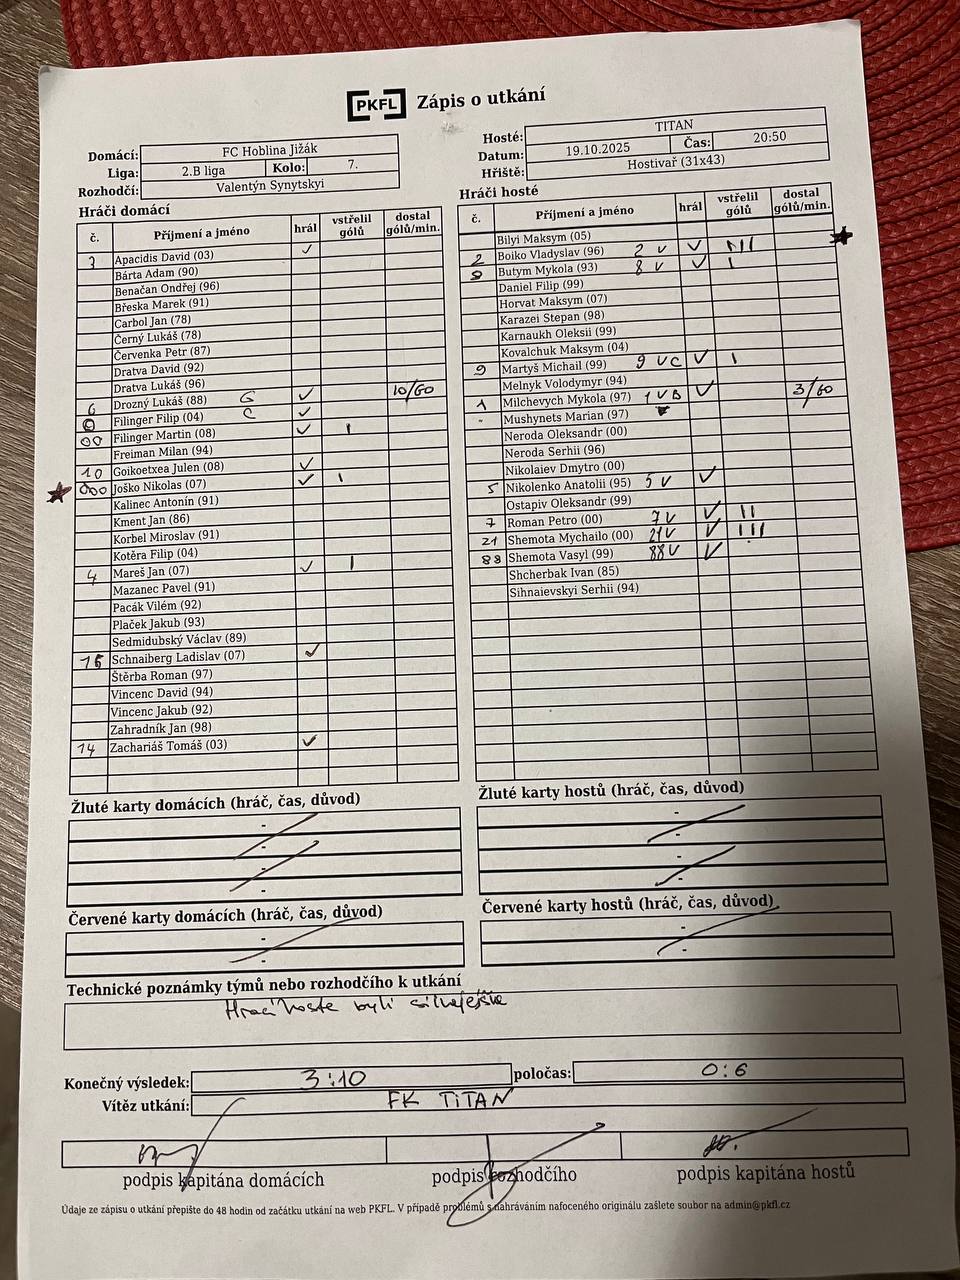 PKFL Zápis o utkání
Domácí: FC Hoblina Jižák
Liga: 2.B liga Kolo: 7.
Rozhodčí: Valentýn Synytskyi
Hosté: TITAN
Datum: 19.10.2025 Čas: 20:50
Hřiště: Hostivař (31x43)
Hráči domácí
č. Příjmení a jméno hrál vstřelil gólů dostal gólů/min.
Apacidis David (03) ✓
Bárta Adam (90)
Benačan Ondřej (96)
Břeska Marek (91)
Carbol Jan (78)
Černý Lukáš (78)
Červenka Petr (87)
Dratva David (92)
Dratva Lukáš (96)
6 Drozný Lukáš (88) G ✓ 10/60
0 Filinger Filip (04) C ✓
00 Filinger Martin (08) ✓ I
Freiman Milan (94)
10 Goikoetxea Julen (08) ✓
000 Joško Nikolas (07) ✓ I
Kalinec Antonín (91)
Kment Jan (86)
Korbel Miroslav (91)
Kotěra Filip (04)
4 Mareš Jan (07) ✓ I
Mazanec Pavel (91)
Pacák Vilém (92)
Plaček Jakub (93)
Sedmidubský Václav (89)
Schnaiberg Ladislav (07) ✓
Štěrba Roman (97)
Vincenc David (94)
Vincenc Jakub (92)
Zahradník Jan (98)
14 Zachariáš Tomáš (03) ✓
Hráči hosté
č. Příjmení a jméno hrál vstřelil gólů dostal gólů/min.
Bilyi Maksym (05)
2 Boiko Vladyslav (96) 2 V V III
Butym Mykola (93) 8 V V I
Daniel Filip (99)
Horvat Maksym (07)
Karazei Stepan (98)
Karnaukh Oleksii (99)
Kovalchuk Maksym (04)
9 Martyš Michail (99) 9 V C V I
Melnyk Volodymyr (94)
1 Milchevych Mykola (97) 1 V B V 3/60
Mushynets Marian (97)
Neroda Oleksandr (00)
Neroda Serhii (96)
Nikolaiev Dmytro (00)
5 Nikolenko Anatolii (95) 5 V V
Ostapiv Oleksandr (99)
7 Roman Petro (00) 7 V V II
21 Shemota Mychailo (00) 21 V V III
88 Shemota Vasyl (99) 88 V V
Shcherbak Ivan (85)
Sihnaievskyi Serhii (94)
Žluté karty domácích (hráč, čas, důvod)
-
-
-
Žluté karty hostů (hráč, čas, důvod)
-
-
-
Červené karty domácích (hráč, čas, důvod)
-
-
Červené karty hostů (hráč, čas, důvod)
-
-
Technické poznámky týmů nebo rozhodčího k utkání
byli
Konečný výsledek: 3:10 poločas: 0:6
Vítěz utkání: FK TITAN
podpis kapitána domácích podpis rozhodčího podpis kapitána hostů
Údaje ze zápisu o utkání přepište do 48 hodin od začátku utkání na web PKFL. V případě problémů s nahráváním nafoceného originálu zašlete soubor na admin@pkfl.cz